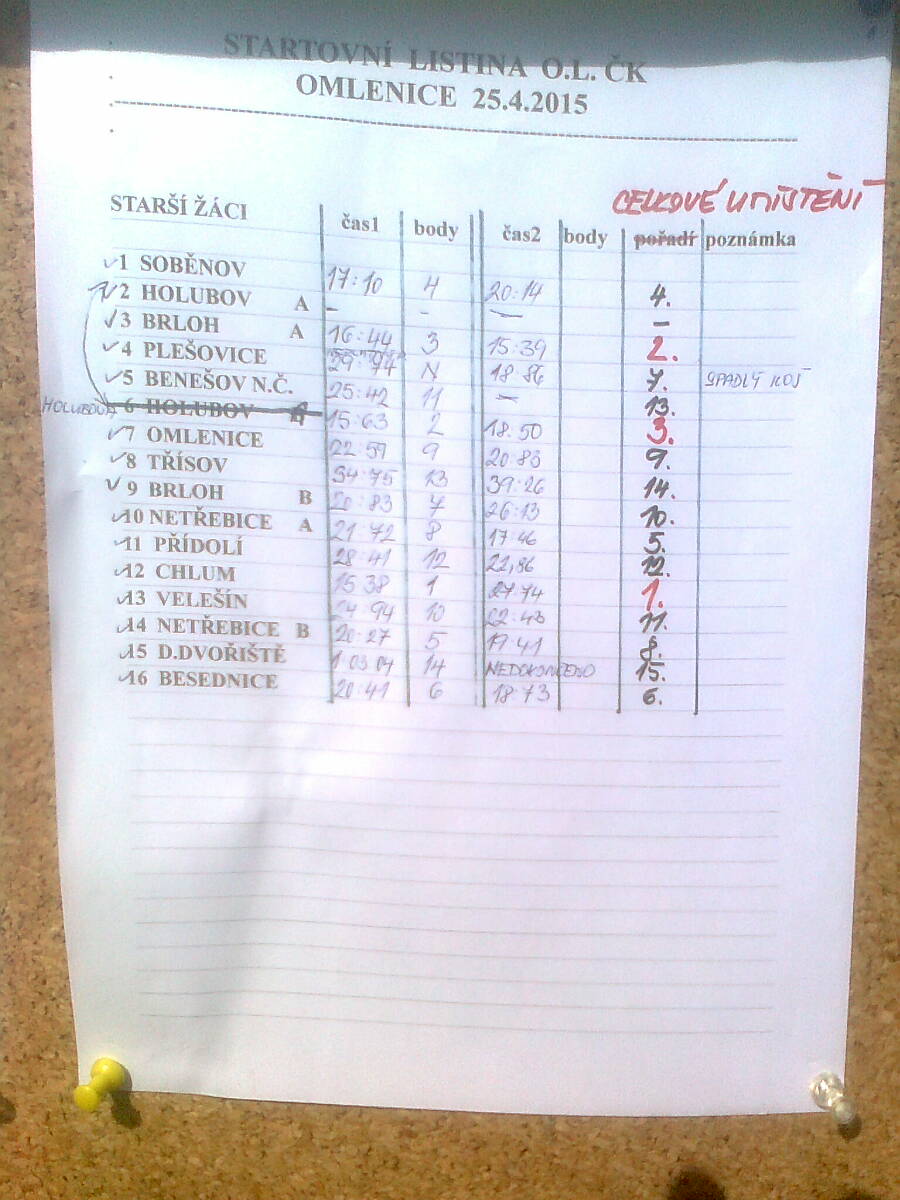 STARTOVNÍ LISTINA O.L. ČK
OMLENICE 25.4.2015
CELKOVÉ UMÍSTĚNÍ
STARŠÍ ŽÁCI čas1 body čas2 body pořadí poznámka
1 SOBĚNOV 17:10 4 20:14 4.
2 HOLUBOV A - - - -
3 BRLOH A 16:44 3 15:39 2.
4 PLEŠOVICE N 18:86 7. SPADLÝ KOŠ
5 BENEŠOV N.Č. 25:42 11 - 13.
HOLUBOV A 6 HOLUBOV 15:63 2 18.50 3.
7 OMLENICE 22:59 9 20:83 9.
8 TŘÍSOV 34:75 13 39:26 14.
9 BRLOH B 20:83 7 26:13 10.
10 NETŘEBICE A 21:72 8 17:46 5.
11 PŘÍDOLÍ 28:41 12 22,86 12.
12 CHLUM 15 38 1 27:74 1.
13 VELEŠÍN 24 94 10 22:43 11.
14 NETŘEBICE B 20:27 5 19:41 8.
15 D.DVOŘIŠTĚ 1:03 04 14 NEDOKONČENO 15.
16 BESEDNICE 20:41 6 18:73 6.